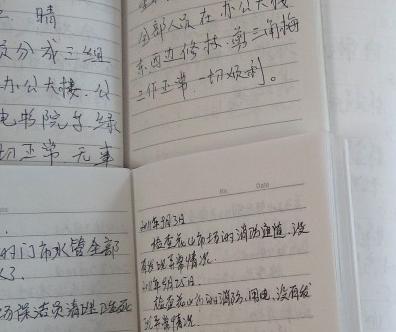 晴
员分成三组
办公大楼.公
电书院等绿
切正常 无事
全部人员在办公大楼
东西边修枝.剪三角梅
工作正常.一切顺利。
的门市水管全部
场保洁员清理
No. Date
2011年9月3日
检查花山市场的消防通道.没
有发现异常情况.
2011年9月25日
检查花山市场的消防.用电.没有发
现异常情况.